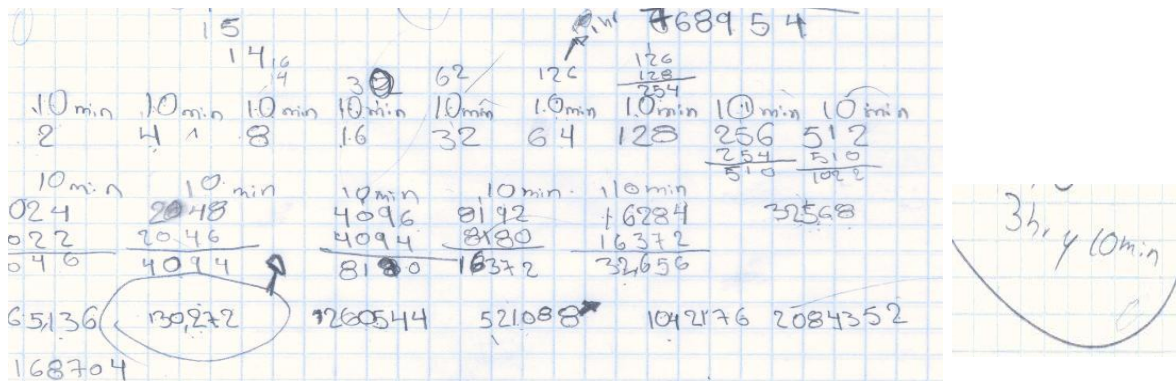 15
768954
14
16
4
32 62 126
126
128
254
10 min 10 min 10 min 10 min 10 min 10 min 10 min 10 min 10 min
2 4 8 16 32 64 128 256 512
254 510
510 1022
10 min 10 min 10 min 10 min 10 min
024 2048 4096 8192 16284 32568
022 2046 4094 8180 16372
046 4094 8180 16372 32,656
65,136 130,272 260544 521088 1042176 2084352
168704
3h, y 10min